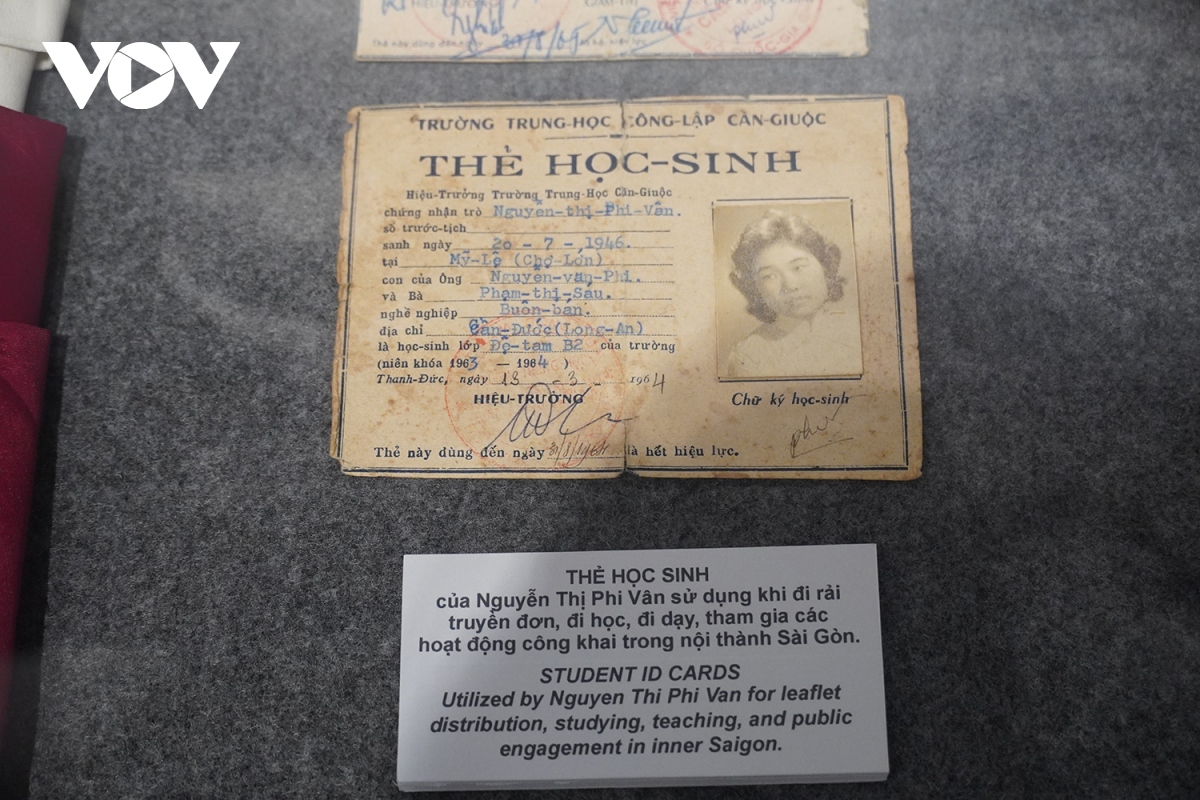 VOV
HIỆU-TRƯỞNG
Thẻ này dùng đến
TRƯỜNG TRUNG-HỌC CÔNG-LẬP CẦN-GIUỘC
THẺ HỌC-SINH
Hiệu-Trưởng Trường Trung-Học Cần-Giuộc
chứng nhận trò Nguyễn-thị-Phi-Vân.
số trước-tịch
sanh ngày 20 - 7 -,1946.
tại Mỹ-Lệ (Chợ-Lớn)
con của Ông Nguyễn-văn-Phi.
và Bà Phạm-thị-Sáu.
nghề nghiệp Buôn-bán.
địa chỉ Cần-Đước(Long-An)
là học-sinh lớp Đệ-tam B2 của trường
(niên khóa 1963 — 1964 )
Thanh-Đức, ngày 13 - 3 - 1964
HIỆU-TRƯỞNG
Chữ ký học-sinh
Thẻ này dùng đến ngày 31/8/1964 là hết hiệu lực.
THẺ HỌC SINH
của Nguyễn Thị Phi Vân sử dụng khi đi rải
truyền đơn, đi học, đi dạy, tham gia các
hoạt động công khai trong nội thành Sài Gòn.
STUDENT ID CARDS
Utilized by Nguyen Thi Phi Van for leaflet
distribution, studying, teaching, and public
engagement in inner Saigon.